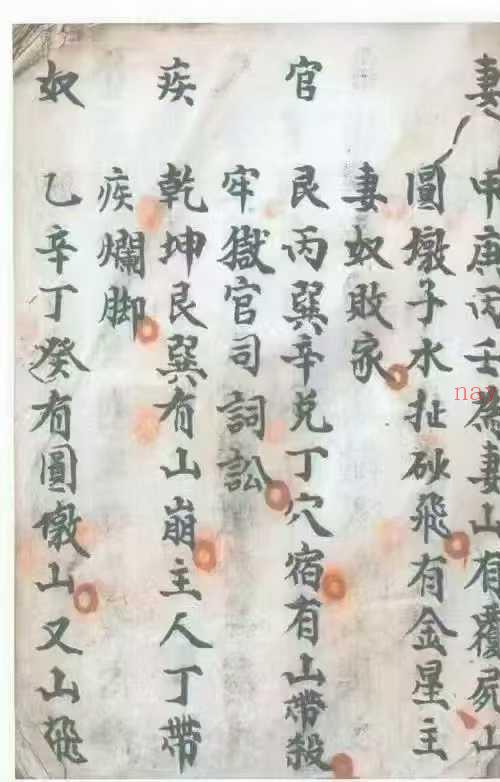 妻 甲庚丙壬為妻山有覆屍山
圓墩子水扯砂飛有金星主
妻奴敗家
官 艮丙巽辛兑丁穴宿有山帶殺
牢獄官司詞訟
疾 乾坤艮巽有山崩主人丁帶
疾爛脚
奴 乙辛丁癸有圓墩山又山飛
nay